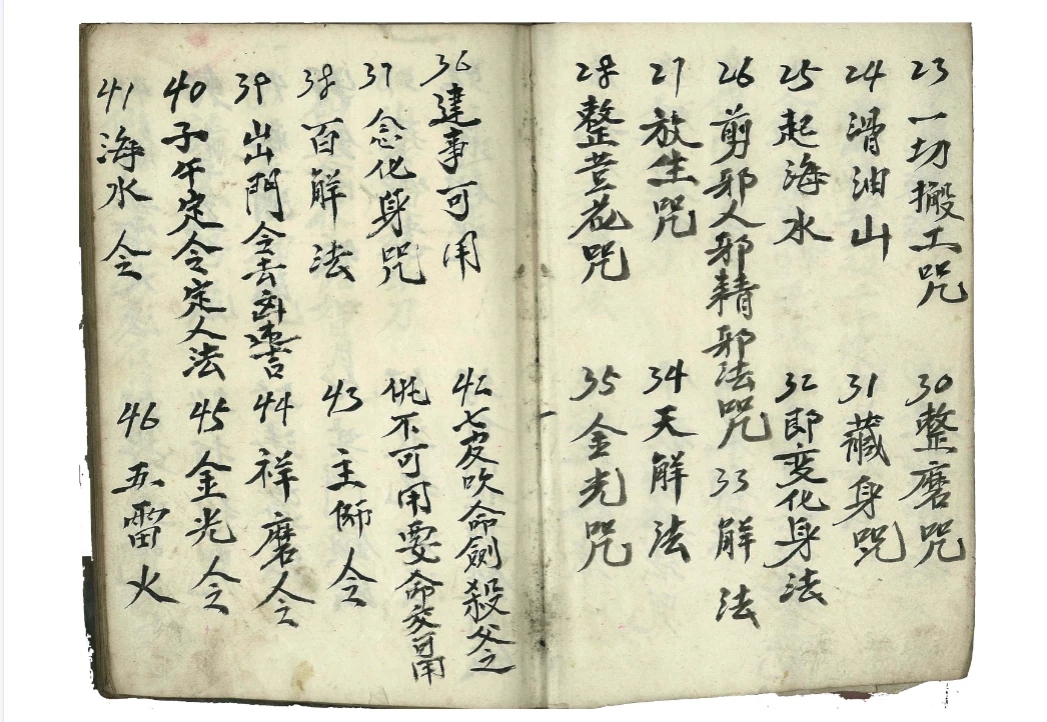 23 一切搬工咒
24 滑油山
25 起海水
26 剪邪人邪精邪法咒
27 放生咒
28 整荳花咒
30 整磨咒
31 藏身咒
32 即变化身法
33 解法
34 天解法
35 金光咒
36 達事可用
37 念化身咒
38 百解法
39 出門令去凶害
40 子午定令定人法
41 海水令
42 七皮吹命劍殺父之
仇不可用要命交可用
43 主師令
44 祥磨令
45 金光令
46 五雷火